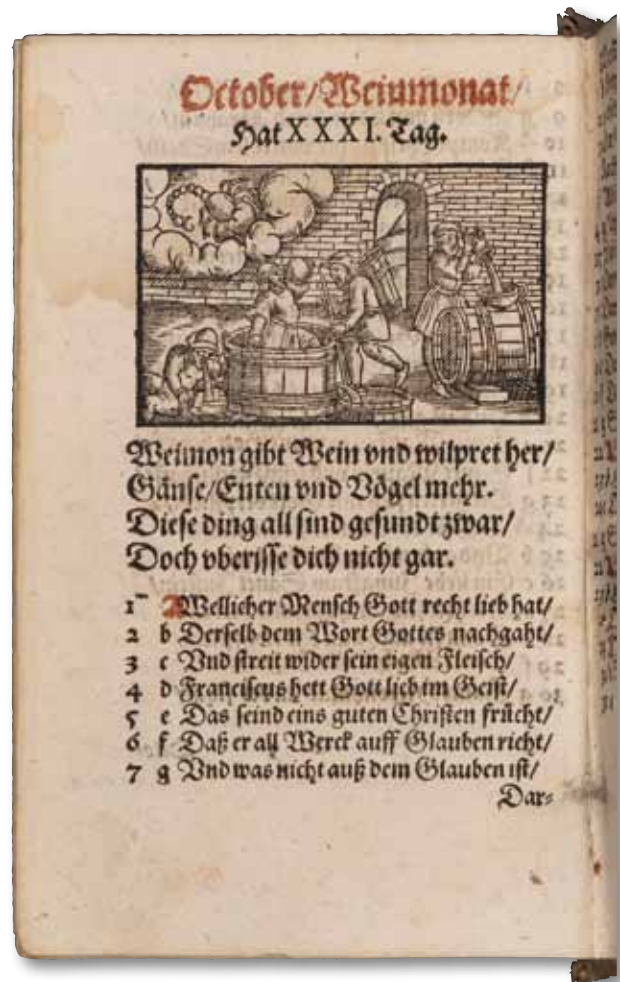 October/Weinmonat/
Hat XXXI. Tag.
Weinmon gibt Wein vnd wilpret her/
Gänse/Enten vnd Vögel mehr.
Diese ding all sind gesundt zwar/
Doch vberisse dich nicht gar.
1 A Wellicher Mensch Gott recht lieb hat/
2 b Derselb dem Wort Gottes nachgaht/
3 c Vnd streit wider sein eigen Fleisch/
4 d Franciscus hett Gott lieb im Geist/
5 e Das seind eins guten Christen frücht/
6 f Daß er all Werck auff Glauben richt/
7 g Vnd was nicht auß dem Glauben ist/
Dar-